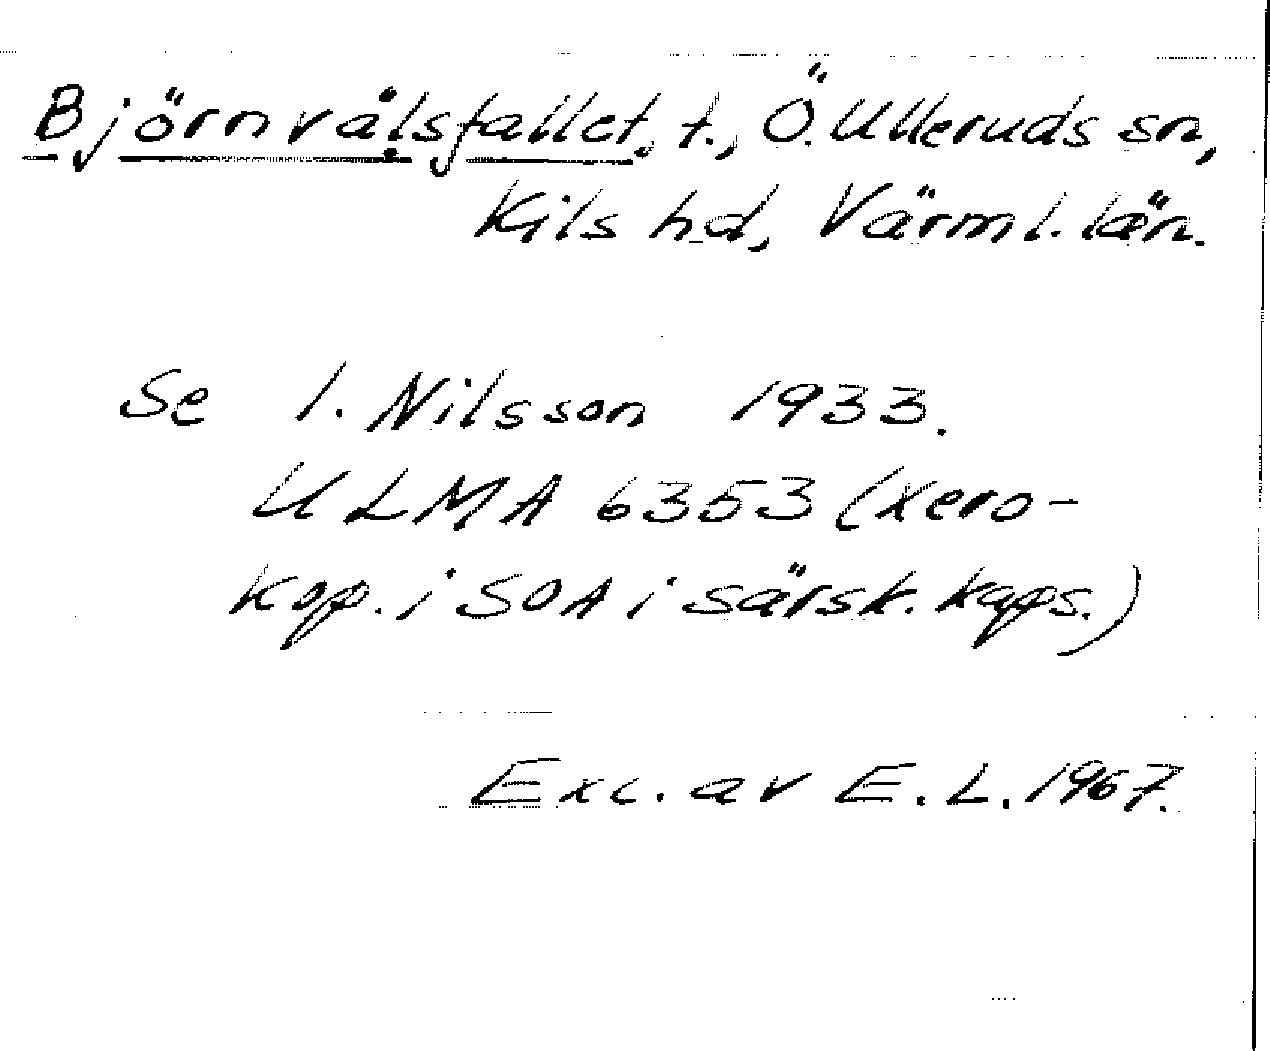 Björnvålsfallet, t., Ö. Ulleruds sn,
Kils hd, Värml. län.
Se I. Nilsson 1933.
ULMA 6353 (xero-
kop. i SOA i särsk. kaps.)
Exc. av E. L. 1967.